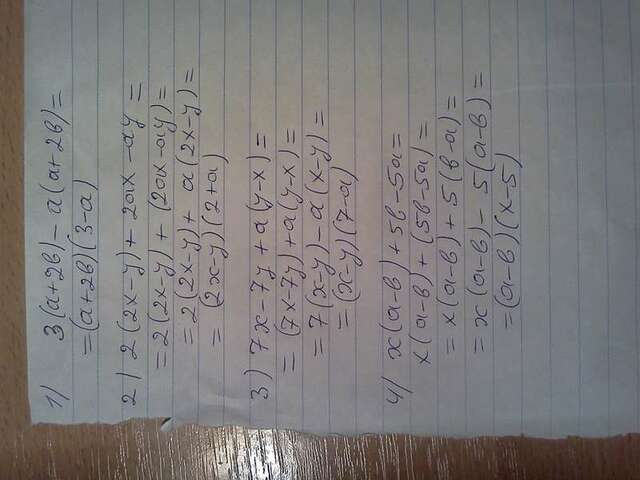 1) 3(a+2b) - a(a+2b) =
= (a+2b)(3-a)
2) 2(2x-y) + 2ax - ay =
= 2(2x-y) + (2ax-ay) =
= 2(2x-y) + a(2x-y) =
= (2x-y)(2+a)
3) 7x-7y + a(y-x) =
= (7x-7y) + a(y-x) =
= 7(x-y) - a(x-y) =
= (x-y)(7-a)
4) x(a-b) + 5b - 5a =
x(a-b) + (5b-5a) =
= x(a-b) + 5(b-a) =
= x(a-b) - 5(a-b) =
= (a-b)(x-5)